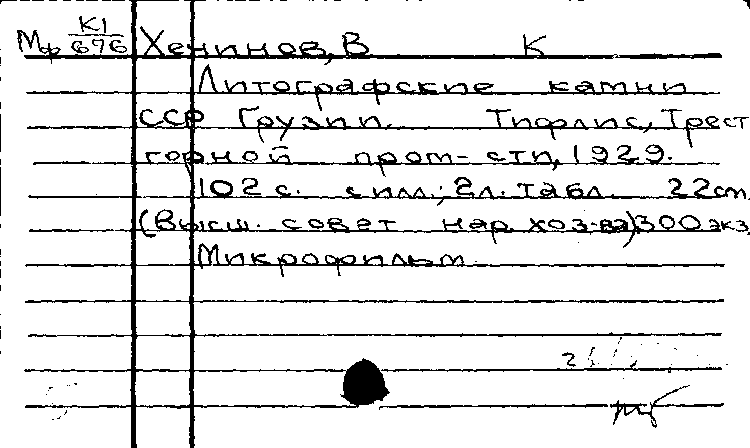 Мф К1/676 Хенинов, В К
Литографские камни
ССР Грузии. Тифлис, Трест
горной пром-сти, 1929.
102 с. с илл.; 2 л. табл. 22 cm
(Высш. совет нар. хоз-ва) 300 экз.
Микрофильм